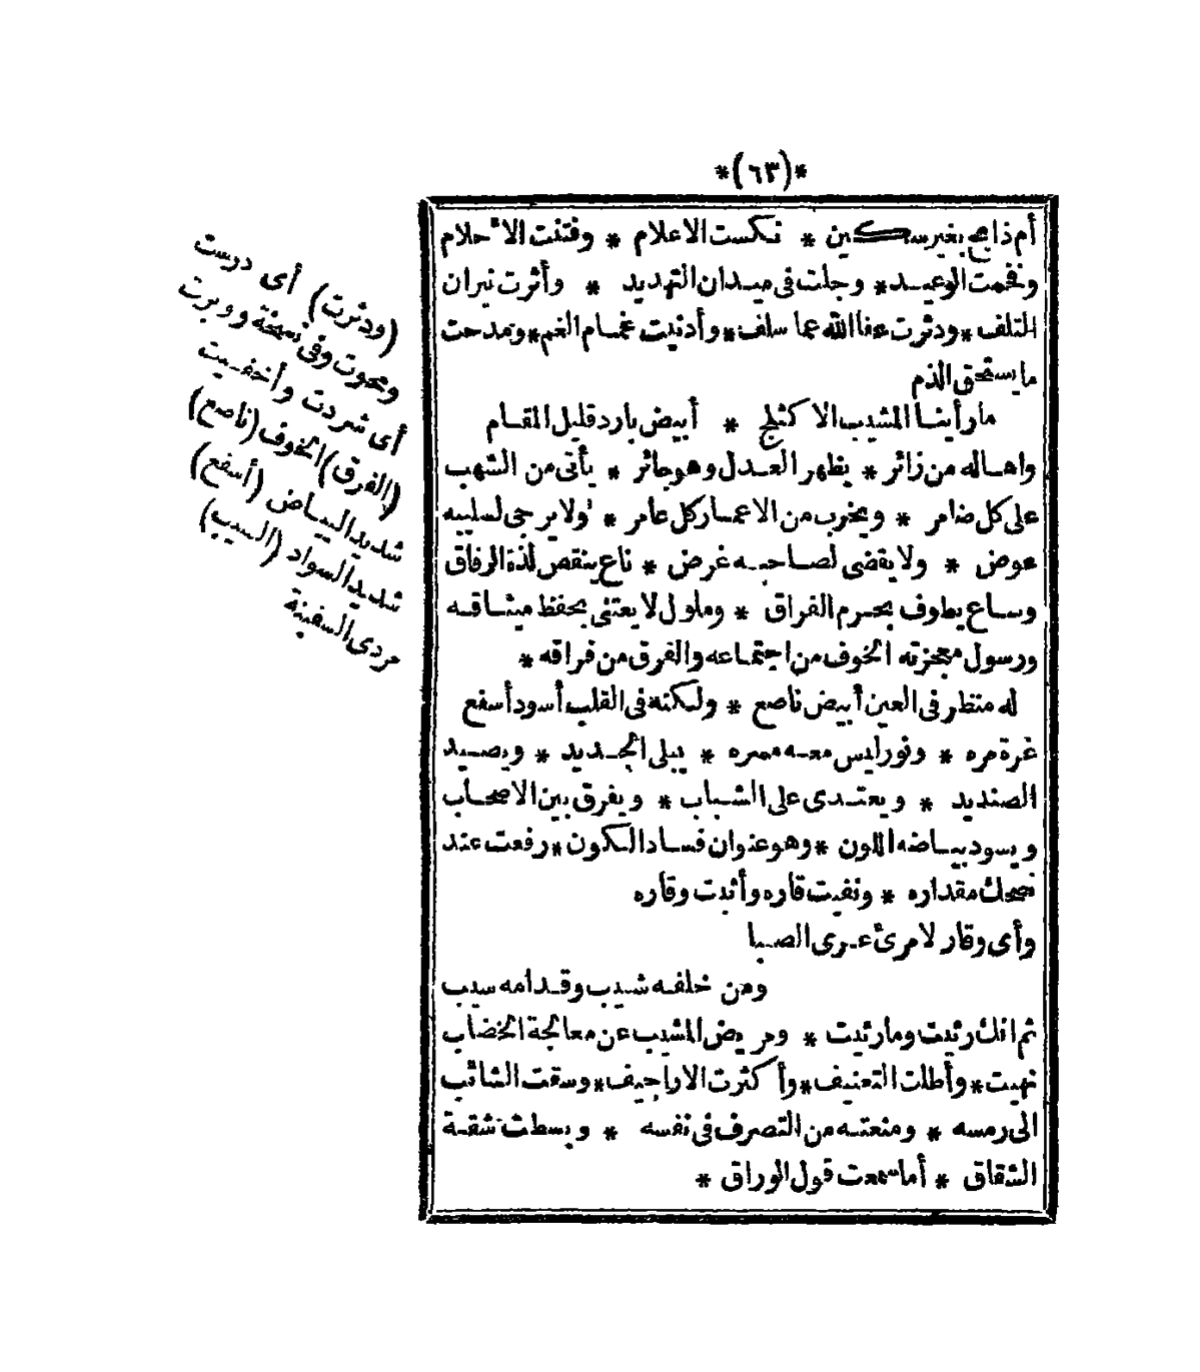 *(٦٣)*
أم ذابح بغير سكين * نكست الاعلام * وفتنت الأحلام
وفخمت الوعيد * وجلت فى ميدان التهديد * وأثرت نيران
التلف * ودثرت عفا الله عما سلف * وأدنيت غمام الغم * ومدحت
ما يستحق الذم
ما رأينا المشيب الا كثلج * أبيض بارد قليل المقام
واهاله من زائر * يظهر العدل وهو جائر * يأتى من الشهب
على كل ضامر * ويخرب من الاعمار كل عامر * ولا يرجى لسليبه
عوض * ولا يقضى لصاحبه غرض * ناع ينقص لذة الرفاق
وساع يطوف بحرم الفراق * وملول لا يعتنى بحفظ ميثاقه
ورسول معجزته الخوف من اجتماعه والفرق من فراقه *
له منظر فى العين أبيض ناصع * ولكنه فى القلب أسود أسفع
غرة مره * ونور ليس معه مسره * يبلى الجديد * ويصيد
الصنديد * ويعتدى على الشباب * ويفرق بين الاصحاب
ويسود ببياضه اللون * وهو عنوان فساد الكون * رفعت عند
ضحك مقداره * ونفيت قاره وأثبت وقاره
وأى وقار لامرئ عرى الصبا
ومن خلفه شيب وقدامه سيب
ثم انك رثيت وما رثيت * ومريض المشيب عن معالجة الخضاب
نهيت * وأطلت التعنيف * وأكثرت الاراجيف * وسقت الشائب
الى رمسه * ومنعته من التصرف فى نفسه * وبسطت شقة
الشقاق * أما سمعت قول الوراق *
(ودثرت) أى درست
ومحوت وفى نسخة ووبرت
أى شردت وأخفيت
(الفرق) الخوف (ناصع)
شديد البياض (أسفع)
شديد السواد (السيب)
مردى السفينة